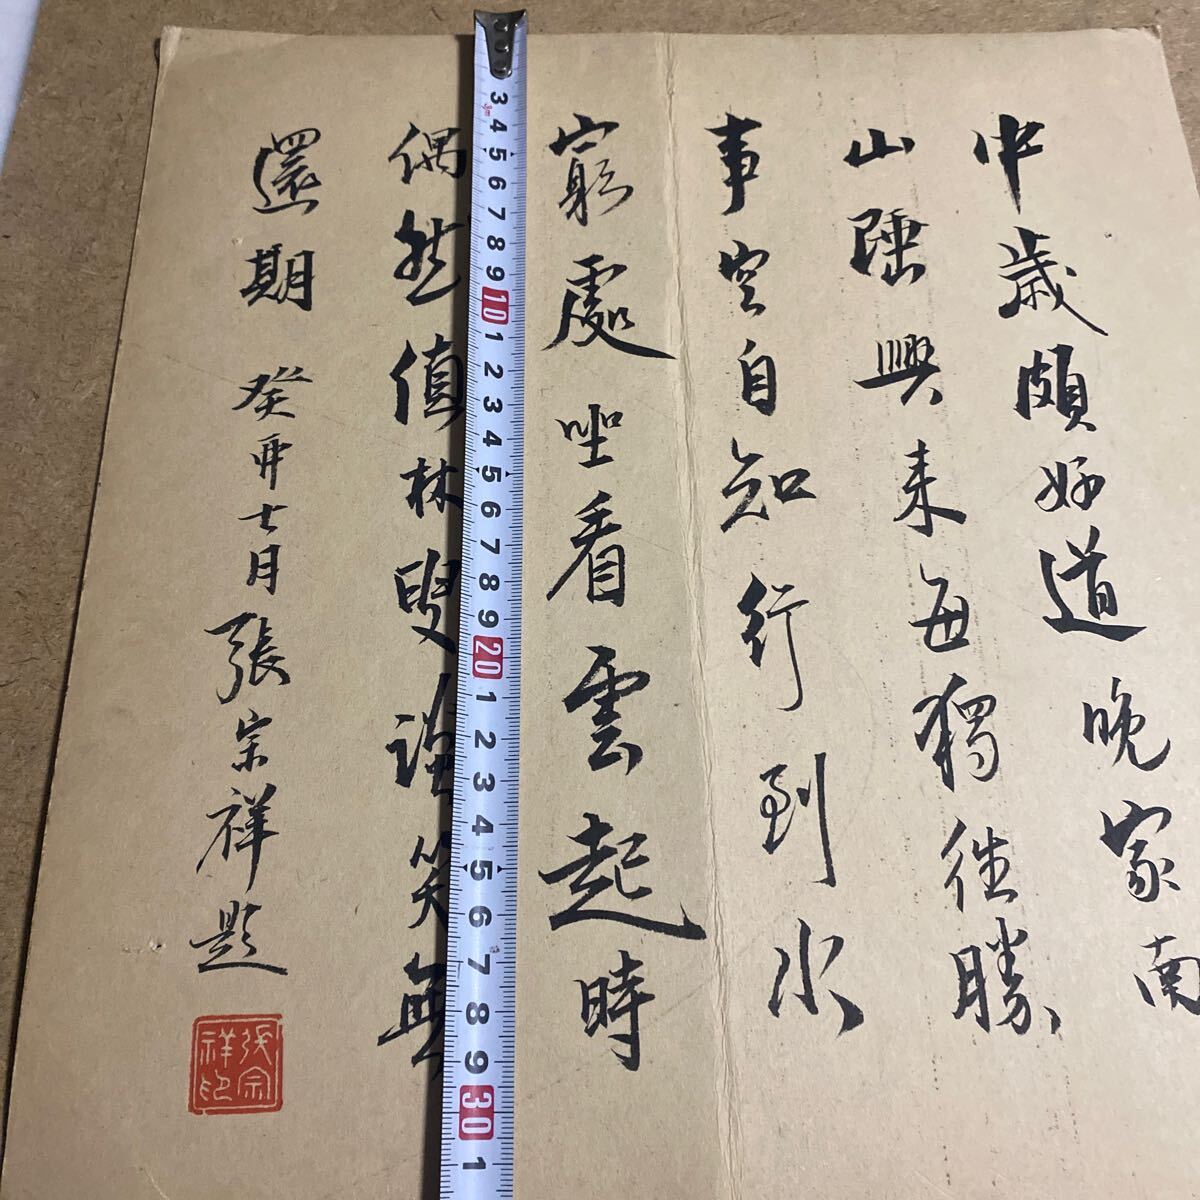 中歲頗好道晚家南
山陲興来每獨往勝
事空自知行到水
窮處坐看雲起時
偶然值林叟談笑無
還期 癸卯七月張宗祥題
張宗
祥印
3 4 5 6 7 8 9 10 1 2 3 4 5 6 7 8 9 20 1 2 3 4 5 6 7 8 9 30 1
3m